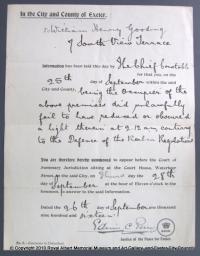 In the City and County of Exeter.
To William Henry Gooding
of South View Terrace
Information has been laid this day by The Chief Constable
for that you, on the
25th day of September within the said
City and County, being the Occupier of the
above premises did unlawfully
fail to have reduced or obscured
a light therein at 9.12 am contrary
to the Defence of the Realm Regulations
You are therefore hereby summoned to appear before the Court of
Summary Jurisdiction sitting at the Court House, Waterbeer
Street, in the said City, on Thurs the 28th
day of September at the hour of Eleven o'clock in the
forenoon, to answer to the said information.
Dated the 26th day of September one thousand
nine hundred and sixteen
Justice of the Peace for Exeter.
©Copyright 2010 Royal Albert Memorial Museum and Art Gallery and Exeter City Council